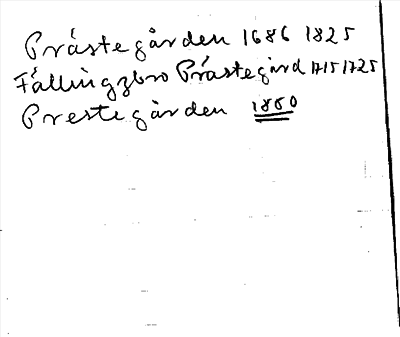 Prästegården 1686 1825
Fällingzbro Prästegård 1715 1725
Prestegården 1860